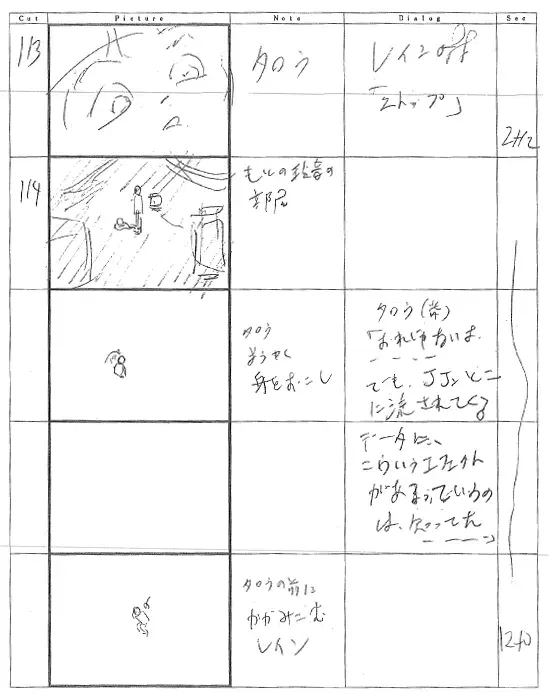 Cut Picture Note Dialog Sec
113
タロウ
レインoff
「ストップ」
2+12
114
もとの録音の
部屋
タロウ
ようやく
身をおこし
タロウ(苦)
「おれじゃないよ
でも、JJんとこ
に流されてくる
データに、
こういうエフェクト
があるっていうの
は、知ってた
タロウの前に
かがみこむ
レイン
12+0